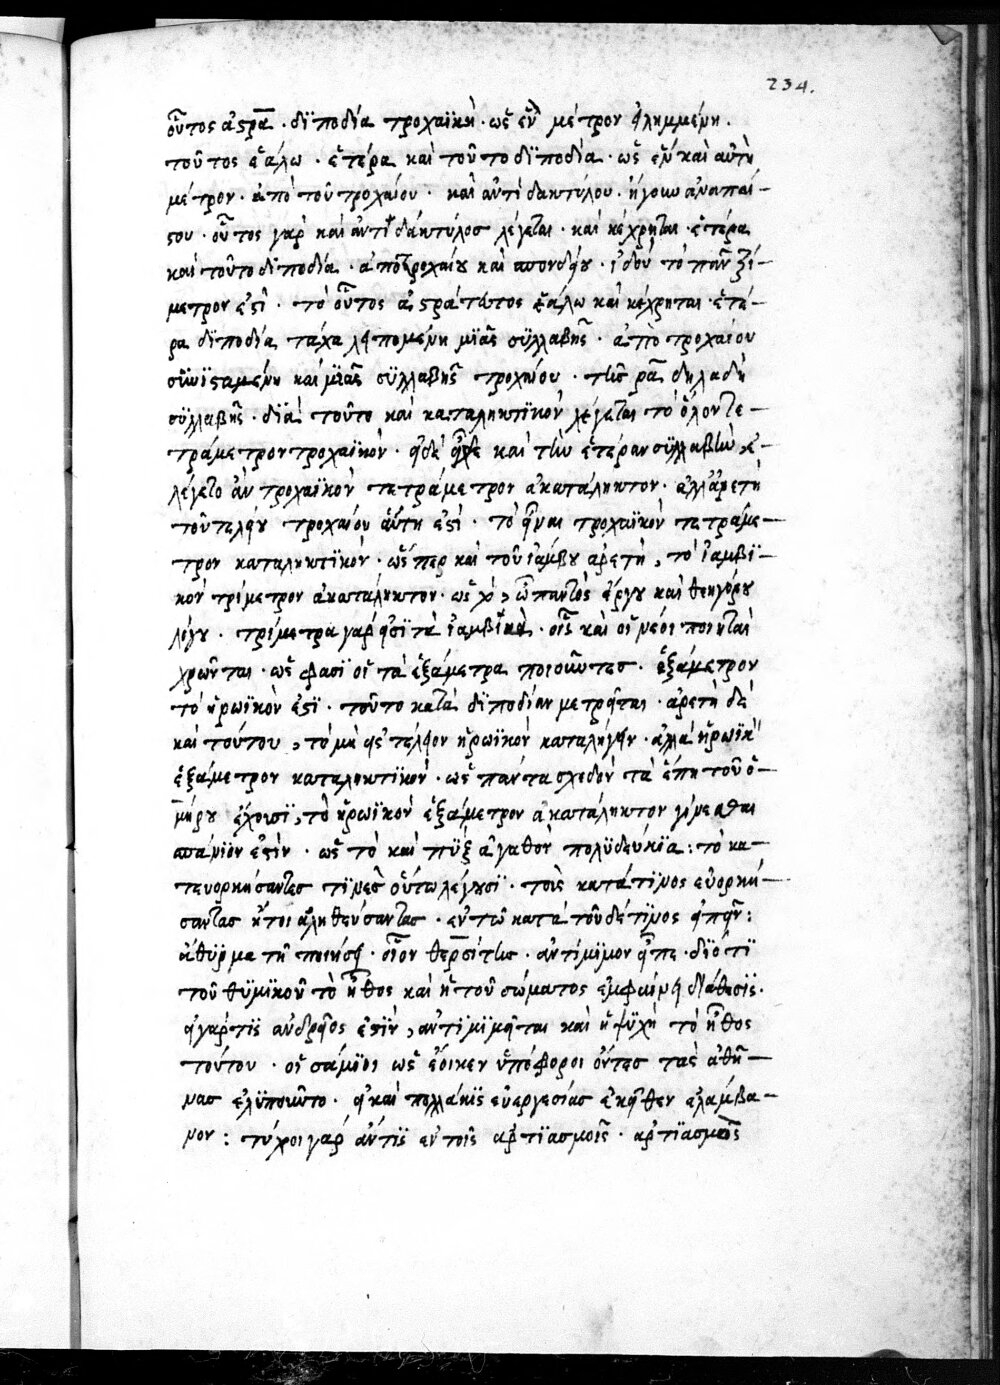 234.
οὗτος ἀστρα · διποδία τροχαϊκὴ · ὡς ἓν μέτρον εἰλημμένη ·
τοῦτος ἑάλω · ἑτέρα καὶ τοῦτο διποδία · ὡς ἓν καὶ αὐτὴ
μέτρον · ἀπὸ τοῦ τροχαίου · καὶ ἀντιδακτύλου · ἤγουν ἀναπαί-
στου · οὗτος γὰρ καὶ ἀντιδάκτυλος λέγεται · καὶ κέχρηται · ἑτέρα
καὶ τοῦτο διποδία · ἀπὸ τροχαίου καὶ σπονδείου · ἰδοὺ τὸ πᾶν
μετρον ἐστὶ · τὸ οὗτος ἀστράτευτος ἑάλω καὶ κέχρηται · ἑτέ-
ρα διποδία τάχα λειπομένη μιᾶς συλλαβῆς · ἀπὸ τροχαίου
συνισταμένη καὶ μιᾶς συλλαβῆς τροχαίου · τῆς ρᾶ δηλαδὴ
συλλαβῆς · διὰ τοῦτο καὶ καταληκτικὸν λέγεται τὸ ὅλον τε-
τράμετρον τροχαϊκὸν · εἰ δὲ εἶχε καὶ τὴν ἑτέραν συλλαβὴν, ἐ-
λέγετο ἂν τροχαϊκὸν τετράμετρον ἀκατάληκτον · ἀλλ' ἀρετὴ
τοῦ τελείου τροχαίου αὕτη ἐστὶ · τὸ εἶναι τροχαϊκὸν τετράμε-
τρον καταληκτικὸν · ὥσπερ καὶ τοῦ ἰάμβου ἀρετὴ, τὸ ἰαμβι-
κὸν τρίμετρον ἀκατάληκτον · ὡς παντὸς ἔργου καὶ θεηγόρου
λόγου · τρίμετρα γὰρ εἰσὶ τὰ ἰαμβικὰ · οἷς καὶ οἱ νέοι ποιηταὶ
χρῶνται · ὥς φασι οἱ τὰ ἑξάμετρα ποιοῦντες · ἑξάμετρον
τὸ ἡρωϊκὸν ἐστὶ · τοῦτο κατὰ διποδίαν μετρεῖται · ἀρετὴ δὲ
καὶ τούτου, τὸ μὴ εἰς τέλειον ἡρωϊκὸν καταλήγειν · ἀλλὰ ἡρωϊκ
ἑξάμετρον καταληκτικὸν · ὡς πάντα σχεδὸν τὰ ἔπη τοῦ ὁ-
μήρου ἔχουσι, τὸ ἡρωϊκὸν ἑξάμετρον ἀκατάληκτον γίνεσθαι
σπάνιον ἐστὶν · ὡς τὸ καὶ πὺξ ἀγαθὸν πολυδεύκια : τὸ κα-
τευορκήσαντες τινὲς οὕτω λέγουσι · τοὺς κατά τινος εὐορκή-
σαντας ἤτοι ἀληθεύσαντας · ἐν τῷ κατὰ τοῦδέ τινος εἰπεῖν :
ἄθυρμα τῆ ποιήσει · οἷον θερσίτης · ἀντίμιμον εἶπε · διότι
τοῦ θυμικοῦ τὸ ἦθος καὶ ἡ τοῦ σώματος ἐμφαίνει διάθεσις ·
εἰ γάρ τις ἀνδρεῖος ἐστὶν, ἀντιμιμεῖται καὶ ἡ ψυχὴ τὸ ἦθος
τούτου · οἱ σάμιοι ὡς ἔοικεν ὑπόφοροι ὄντες τὰς ἀθή-
νας ἐλύπουν το · εἰ καὶ πολλάκις εὐεργεσίας ἐκεῖθεν ἐλάμβα-
νον : τύχοι γὰρ ἄντις ἐν τοῖς ἀρτιασμοῖς · ἀρτιασμοῖς